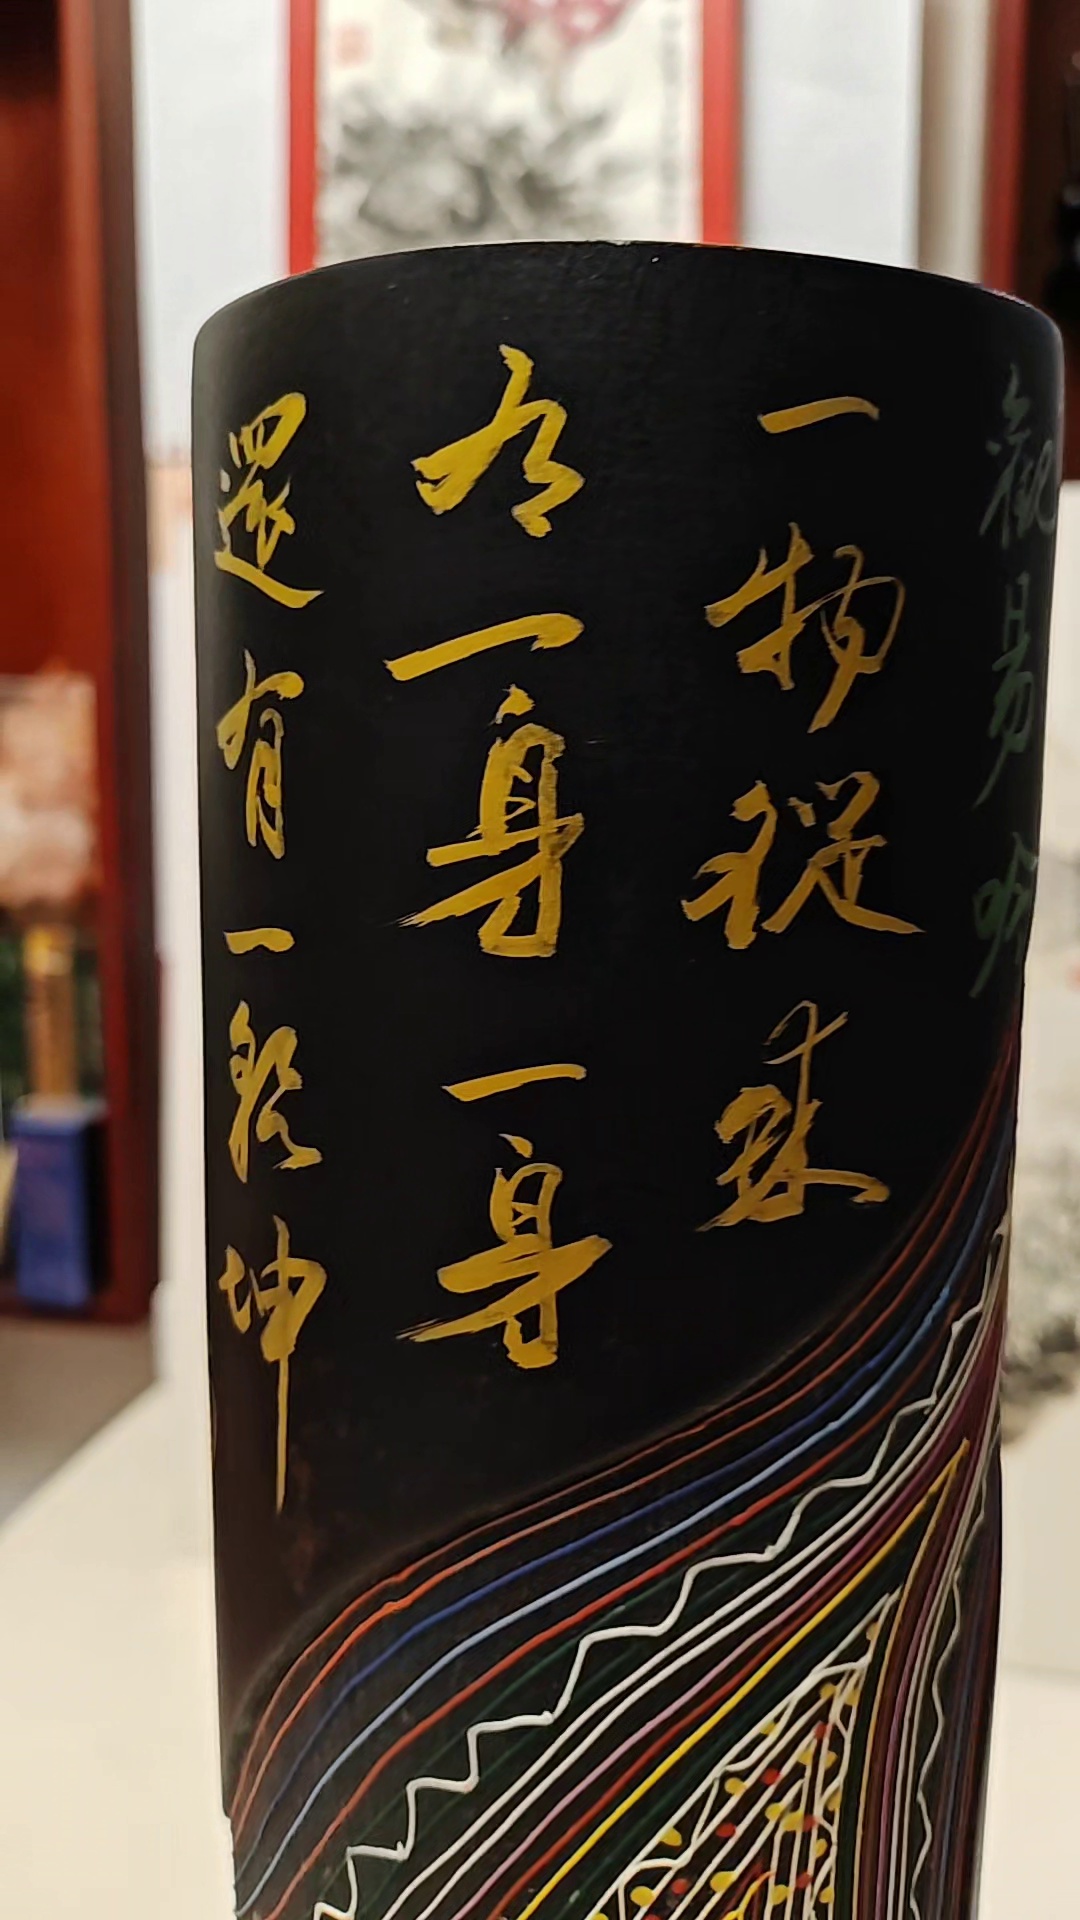 觀易吟
一物從來
有一身一身
還有一乾坤